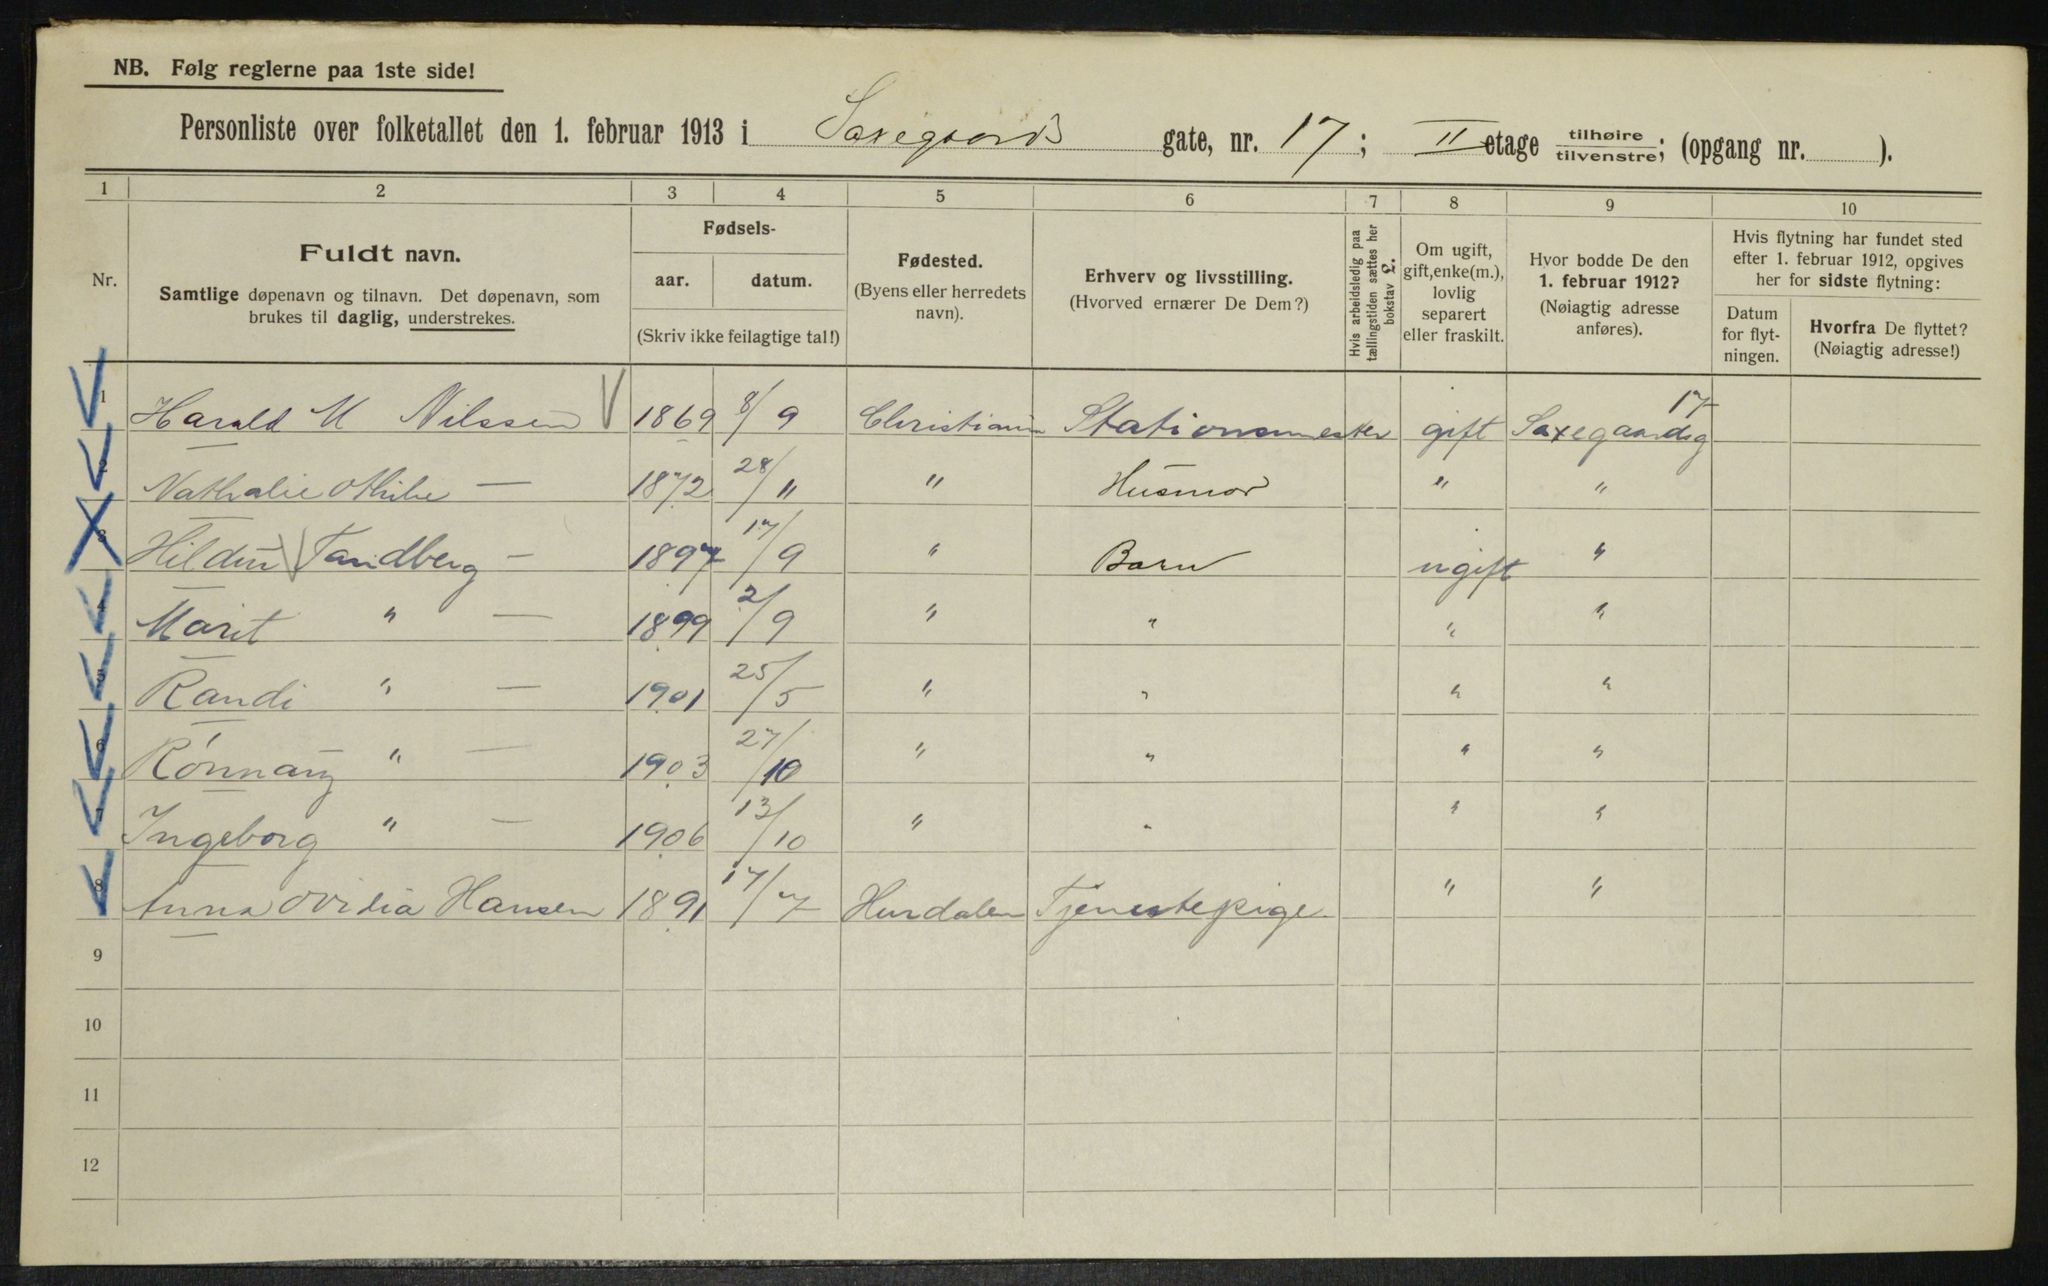 NB. Følg reglerne paa 1ste side!
Personliste over folketallet den 1. februar 1913 i Saxegaards gate, nr. 17; II etage tilhøire/tilvenstre; (opgang nr. ).
1 2 3 4 5 6 7 8 9 10
Nr.
Fuldt navn.
Samtlige døpenavn og tilnavn. Det døpenavn, som
brukes til daglig, understrekes.
Fødsels-
aar. datum.
(Skriv ikke feilagtige tal!)
Fødested.
(Byens eller herredets
navn).
Erhverv og livsstilling.
(Hvorved ernærer De Dem?)
Hvis arbeidsledig paa
tællingstiden sættes her
bokstav L.
Om ugift,
gift, enke(m.),
lovlig
separert
eller fraskilt.
Hvor bodde De den
1. februar 1912?
(Nøiagtig adresse
anføres).
Hvis flytning har fundet sted
efter 1. februar 1912, opgives
her for sidste flytning:
Datum
for flyt-
ningen.
Hvorfra De flyttet?
(Nøiagtig adresse!)
1 Harald M Nilssen 1869 8/9 Christiania Stationsmester gift Saxegaardsg 17
2 Nathalie — 1872 28/" " Husmor " "
3 Hildur Tandberg — 1897 17/9 " Barn ugift "
4 Marit " — 1899 2/9 " " " "
5 Randi " — 1901 25/5 " " " "
6 Rónnaug " — 1903 27/10 " " " "
7 Ingeborg " — 1906 13/10 " " " "
8 Anna Hansen 1891 17/7 Hurdalen Tjenestepige " "
9
10
11
12